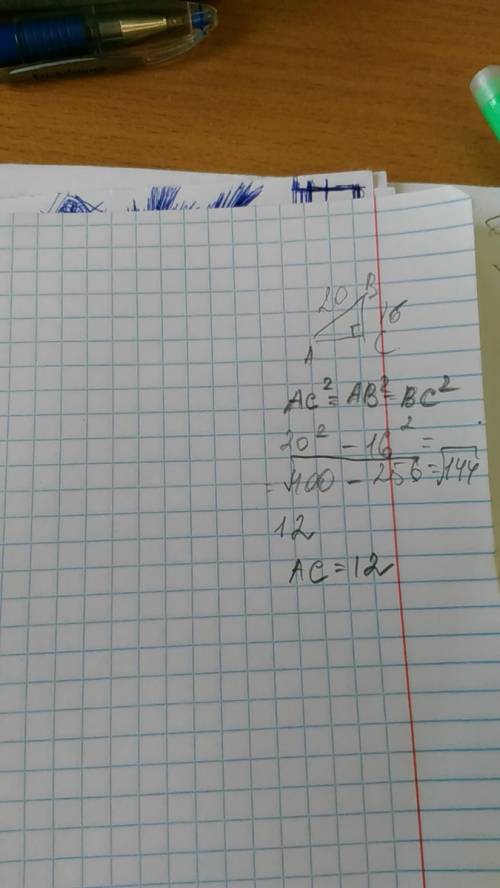 20
B
16
A
C
AC² = AB² = BC²
20² - 16² =
= √400 - 256 = √144
12
AC = 12